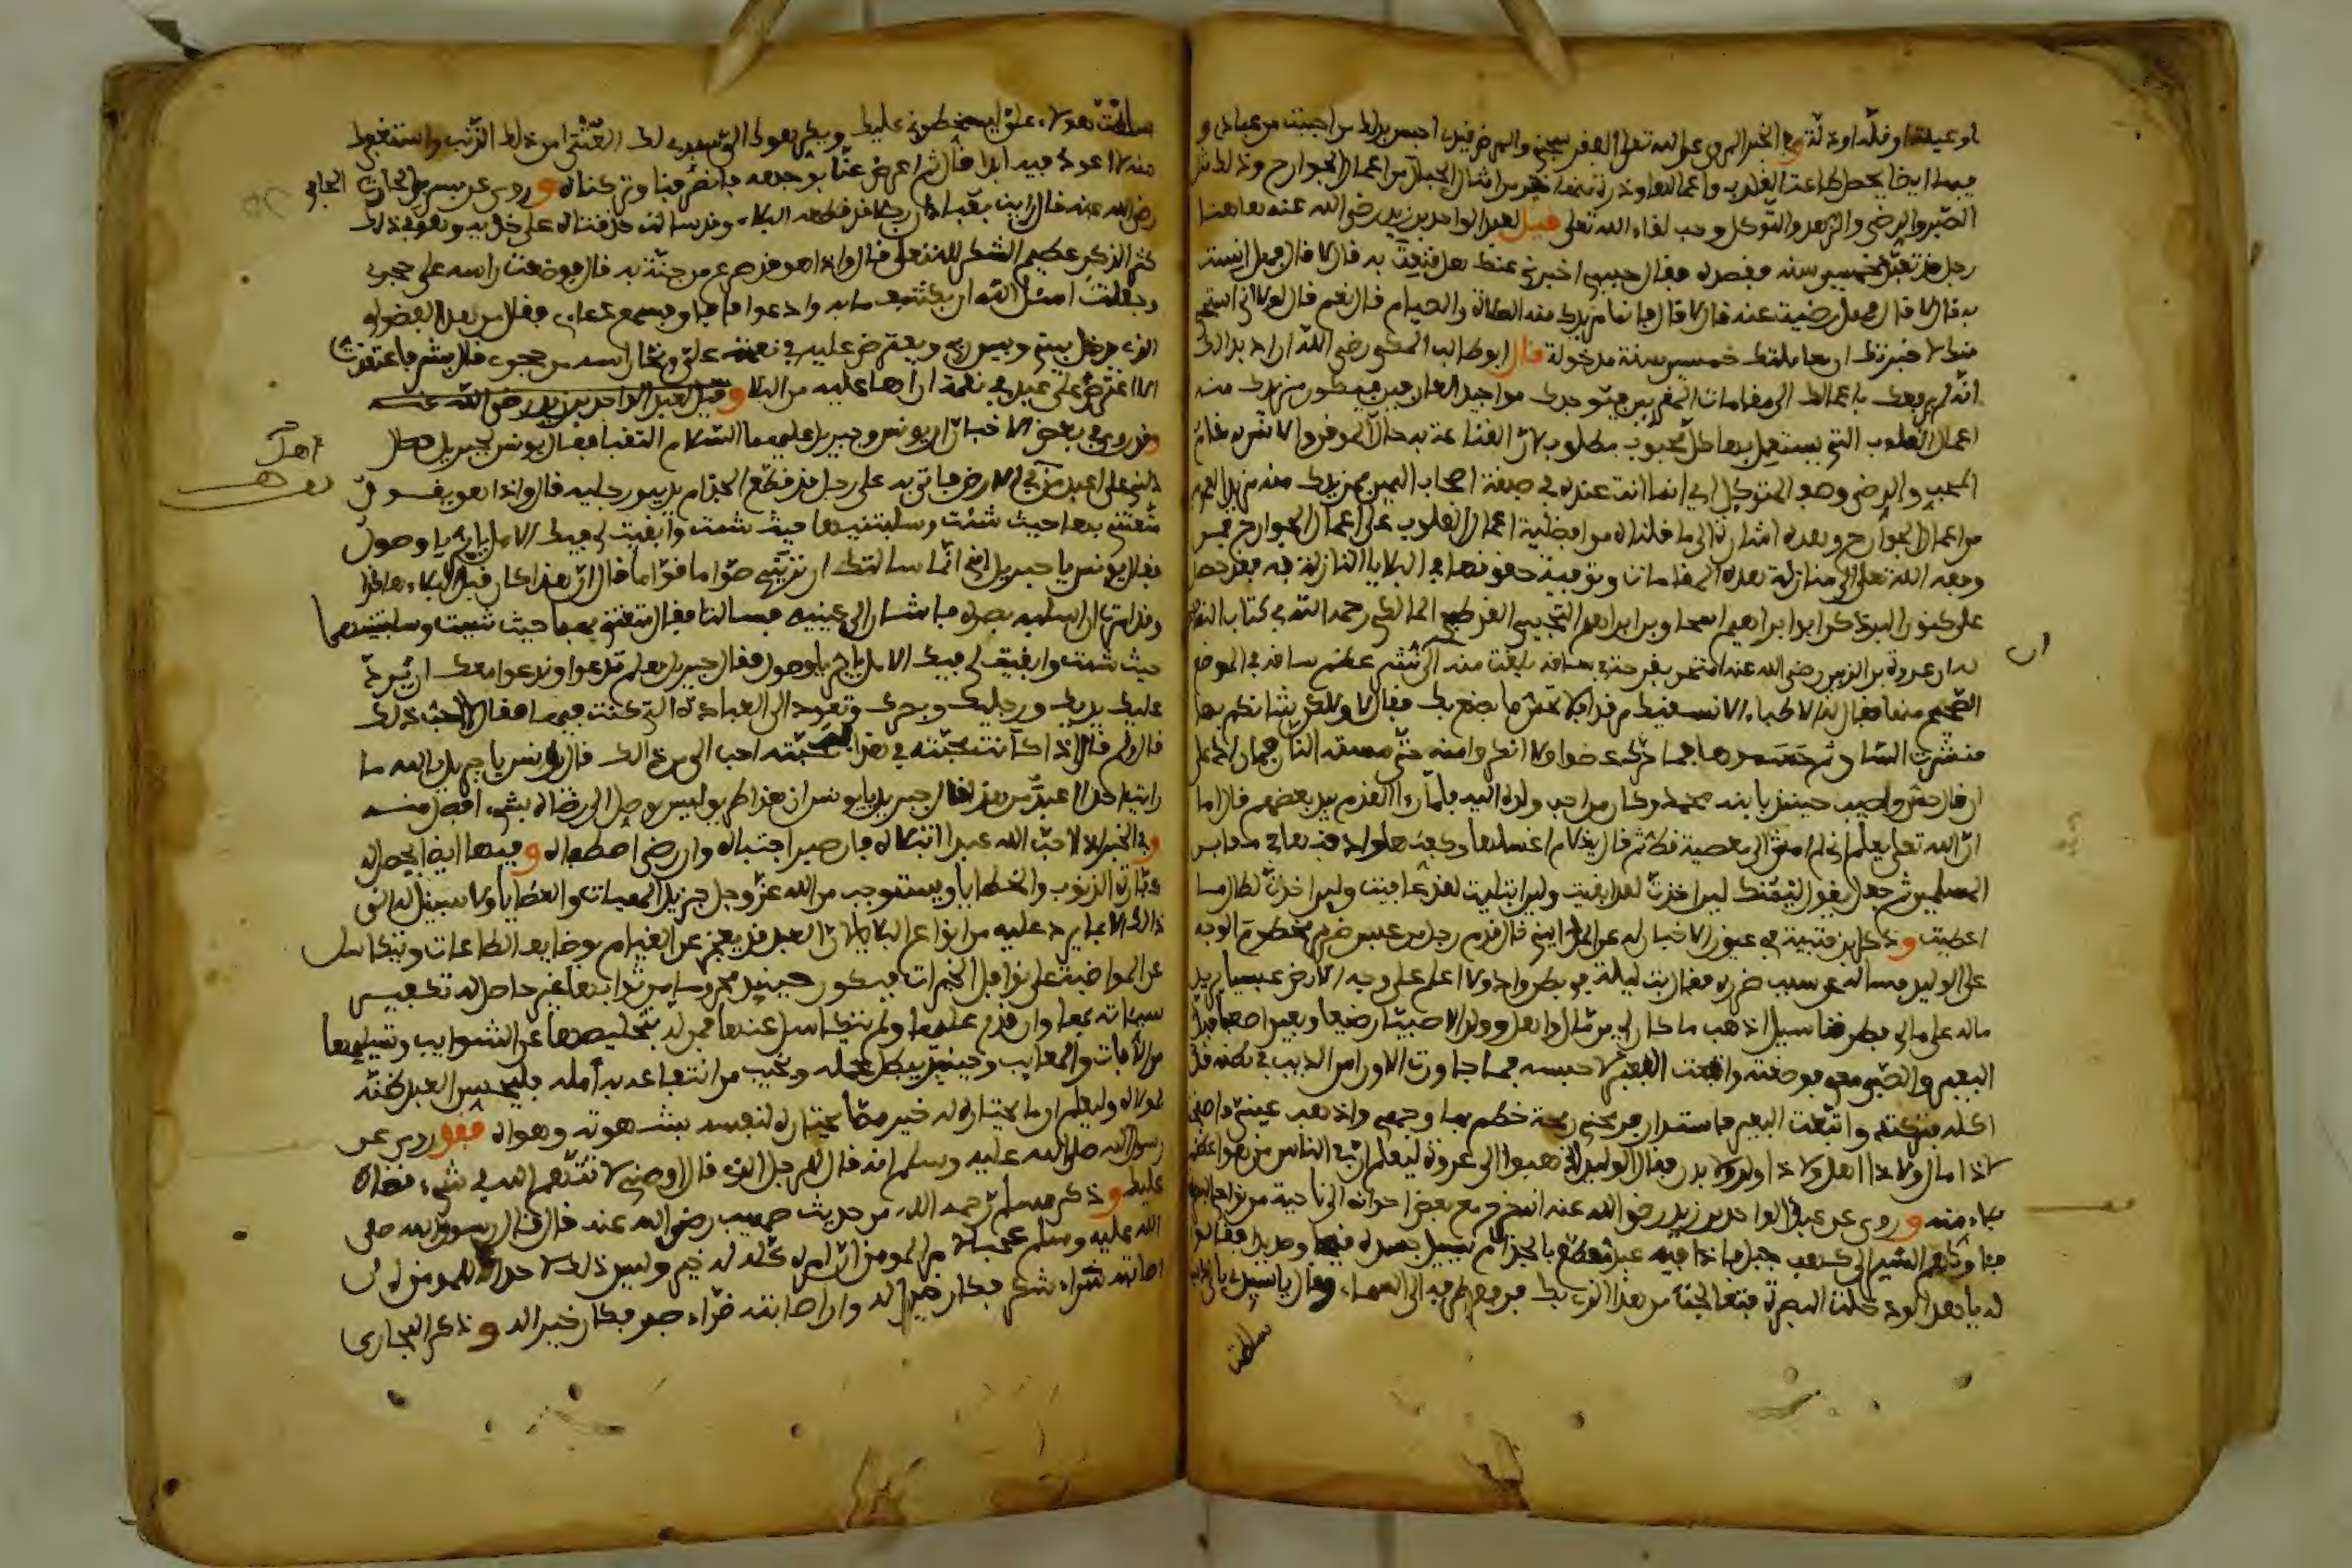 او عيلة او قلة او ذلة وفي الخبر المروي عن الله تعلى الفقر سجني والمرض قيدي احبس بذلك من احببت من عبادي و
فيها ايضا يحصل طاعت القلوب واعمالها وذرة منها خير من امثال الجبال من اعمال الجوارح وذلك مثل
الصبر والرضى والزهد والتوكل وحب لقاء الله تعلى قيل لعبد الواحد بن زيد رضي الله عنه هاهنا
رجل قد تعبد خمسين سنة فقصده فقال حبيبي اخبرني عنك هل قنعت به قال لا قال فهل انست
به قال لا قال فهل رضيت عنه قال لا قال فانما مزيدك منه الصلاة والصيام قال نعم قال لولا اني استحي
منك لاخبرتك ان معاملتك خمسين سنة مدخولة قال ابو طالب المكي رضي الله اراد بذلك
انه لم يرفعك باعمالك الى مقامات المقربين فيوجدك مواجيد العارفين فيكون مزيدك منه
اعمال القلوب التي يستعمل بها كل محبوب مطلوب لان القناعة به حال الموقن والانس به مقام
المحب والرضى وصف المتوكل اي انما انت عنده في طبقة اصحاب اليمين فمزيدك منه مزيد العموم
من اعمال الجوارح وهذه اشارة الى ما قلناه من افضلية اعمال القلوب على اعمال الجوارح فمن
وفقه الله تعلى الى منازلة هذه المقامات وتوفية حقوقها في البلايا النازلة به فقد حصل
على كنوز البر ذكر ابو ابراهيم اسحاق بن ابراهيم التجيبي القرطبي المالكي رحمه الله في كتاب النصائح
له ان عروة بن الزبير رضي الله عنه امتحن بقرحة في ساقه بلغت منه الى نشر عظم ساقه في الموضع
الصحيح منها فقال له الاطباء الا نسقيك مرقدا فلا تحس ما يصنع بك فقال لا ولكن شانكم بها
فنشرت الساق ثم حسموها فما حرك عضوا ولا انكروا منه حتى مسته النار فما زاد على
ان قال حس واصيب حينئذ بابنه محمد وكان من احب ولده اليه فلما راى القدم بيد بعضهم قال اما
ان الله تعلى يعلم اني لم امش الى معصية قط ثم قال يا غلام اغسلها وكفنها وادفنها في مقابر
المسلمين ثم جعل يقول ليمنك لين اخذت لقد ابقيت ولين ابتليت لقد عافيت ولين اخذت لطالما
اعطيت وذكر ابن قتيبة في عيون الاخبار له عن المدايني قال قدم رجل من عبس ضرير محطوم الوجه
على الوليد فساله عن سبب ضره فقال بت ليلة في بطن واد ولا اعلم على وجه الارض عبسيا يزيد
ماله على مالي فطرقنا سيل اذهب ما كان لي من مال واهل وولد الا صبيا رضيعا وبعيرا صعبا فند
البعير والصبي معي فوضعته واتبعت البعير لاحبسه فما جاوزت الا وراس الذيب في بطنه قد
اكله فتركته واتبعت البعير فاستدار فرمحني رمحة حطم بها وجهي واذهب عيني فاصبحت
لا ذا مال ولا ذا اهل ولا ذا ولد ولا بصر فقال الوليد اذهبوا الى عروة ليعلم ان في الناس من هو اعظم
بلاء منه وروي عن عبد الواحد بن زيد رضي الله عنه انه خرج مع بعض اخوانه الى ناحية من نواحي البصرة
فاواهم السير الى كهف جبل فاذا فيه عبد مقطع بالجذام يسيل جسده قيحا وصديدا فقالوا
له يا هذا لو دخلت البصرة فتعالجت من هذا الذي بك فرفع طرفه الى السماء وقال يا سيدي باي ذنب
سلطت
سلطت هؤلاء علي يسخطوني عليك ويكرهوني اليك سيدي لك العتبى من ذلك الذنب واستغفرك
منه لا اعود فيه ابدا قال ثم اعرض عنا بوجهه فانصرفنا وتركناه وروي عن بسر بن الحارث الحافي
رضي الله عنه قال رايت بعبادان رجلا قد قطعه البلاء وقد سالت حدقتاه على خديه وهو في ذلك
كثير الذكر عظيم الشكر لله تعلى قال واذا هو قد صرع من جنة به قال فوضعت راسه على حجري
وجعلت اسئل الله ان يكشف ما به وادعوا فافاق فسمع دعائي فقال من هذا الفضولي
الذي يدخل بيني وبين ربي ويعترض عليه في نعمته علي ونحا راسه من حجري قال بشر فاعتقدت
الا اعترض على عبد في نعمة اراها عليه من البلاء وقيل لعبد الواحد بن زيد رضي الله عنه
وقد روي في بعض الاخبار ان يونس وجبريل عليهما السلام التقيا فقال يونس لجبريل
دلني على اعبد من في الارض فاتى به على رجل قد قطع الجذام يديه ورجليه قال واذا هو يقول
متعتني بهما حيث شئت وسلبتنيهما حيث شئت وابقيت لي فيك الامل يا بر يا وصول
فقال يونس يا جبريل اني انما سالتك ان ترينيه صواما قواما قال ان هذا كان قبل البلاء هكذا
وقد امرت ان اسلبه بصره فاشار الى عينيه فسالتا فقال متعتني بهما حيث شئت وسلبتنيهما
حيث شئت وابقيت لي فيك الامل يا بر يا وصول فقال جبريل هلم تدعوا وندعوا معك ان يرد
عليك يديك ورجليك وبصرك وتعود الى العبادة التي كنت فيها فقال لا احب ذلك
قال ولم قال اذا كانت محبته في هذا فمحبته احب الي من ذلك قال يونس يا جبريل بالله ما
رايت احدا اعبد من هذا قال جبريل يا يونس ان هذا طريق ليس يوصل الى رضاه بشيء افضل منه
وفي الخبر اذا احب الله عبدا ابتلاه فان صبر اجتباه وان رضي اصطفاه وفيها ايضا يحصل له
كفارة الذنوب والخطايا ويستوجب من الله عز وجل جزيل الهبات والعطايا ولا سبيل له الى
ذلك الا بما يرد عليه من انواع البلايا لان العبد قد يعجز عن القيام بوضايف الطاعات ويتكاسل
عن المواضبة على نوافل الخيرات فيكون حينئذ محروما من ثوابها غير حاصل له تكفير
سيئاته بها وان قدر عليها ولم يتكاسل عنها فمن له بتخليصها عن الشوايب وتسليمها
من الافات والمعايب وحينئذ يبطل عمله ويخيب من انتفاعه به امله فليحسن العبد ظنه
بمولاه وليعلم ان ما يختاره له خير مما يختاره لنفسه بشهوته وهواه فقد روي عن
رسول الله صلى الله عليه وسلم انه قال للرجل الذي قال اوصني لا تتهم الله في شيء قضاه
عليك وذكر مسلم رحمه الله من حديث صهيب رضي الله عنه قال قال رسول الله صلى
الله عليه وسلم عجبا لامر المومن ان امره كله له خير وليس ذلك لاحد الا للمومن ان
اصابته سراء شكر فكان خيرا له وان اصابته ضراء صبر فكان خيرا له وذكر البخاري